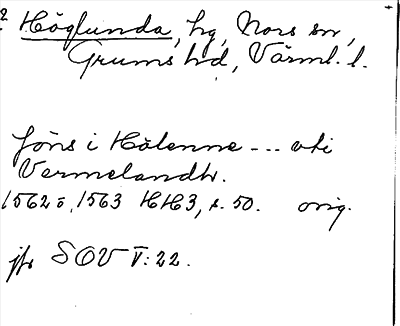 2 Höglunda, hg, Nors sn,
Grums hd, Värml. l.
Jöns i Hölenne --- uti
Vermelandh.
1562 ö, 1563 HH3, s. 50. orig.
jfr SOV V: 22.